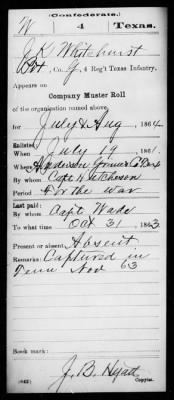 (Confederate.)
W 4 Texas.
J. K. Whitehurst
Pvt, Co. G, 4 Reg't Texas Infantry.
Appears on
Company Muster Roll
of the organization named above,
for July & Aug, 1864.
Enlisted:
When July 19, 1861.
Where Anderson Grimes Co Tex
By whom Capt Hutcheson
Period For the war
Last paid:
By whom Capt Wade
To what time Oct 31, 1863.
Present or absent Absent
Remarks: Captured in
Tenn Nov 63
Book mark:
J. B. Hyatt
(642) Copyist.